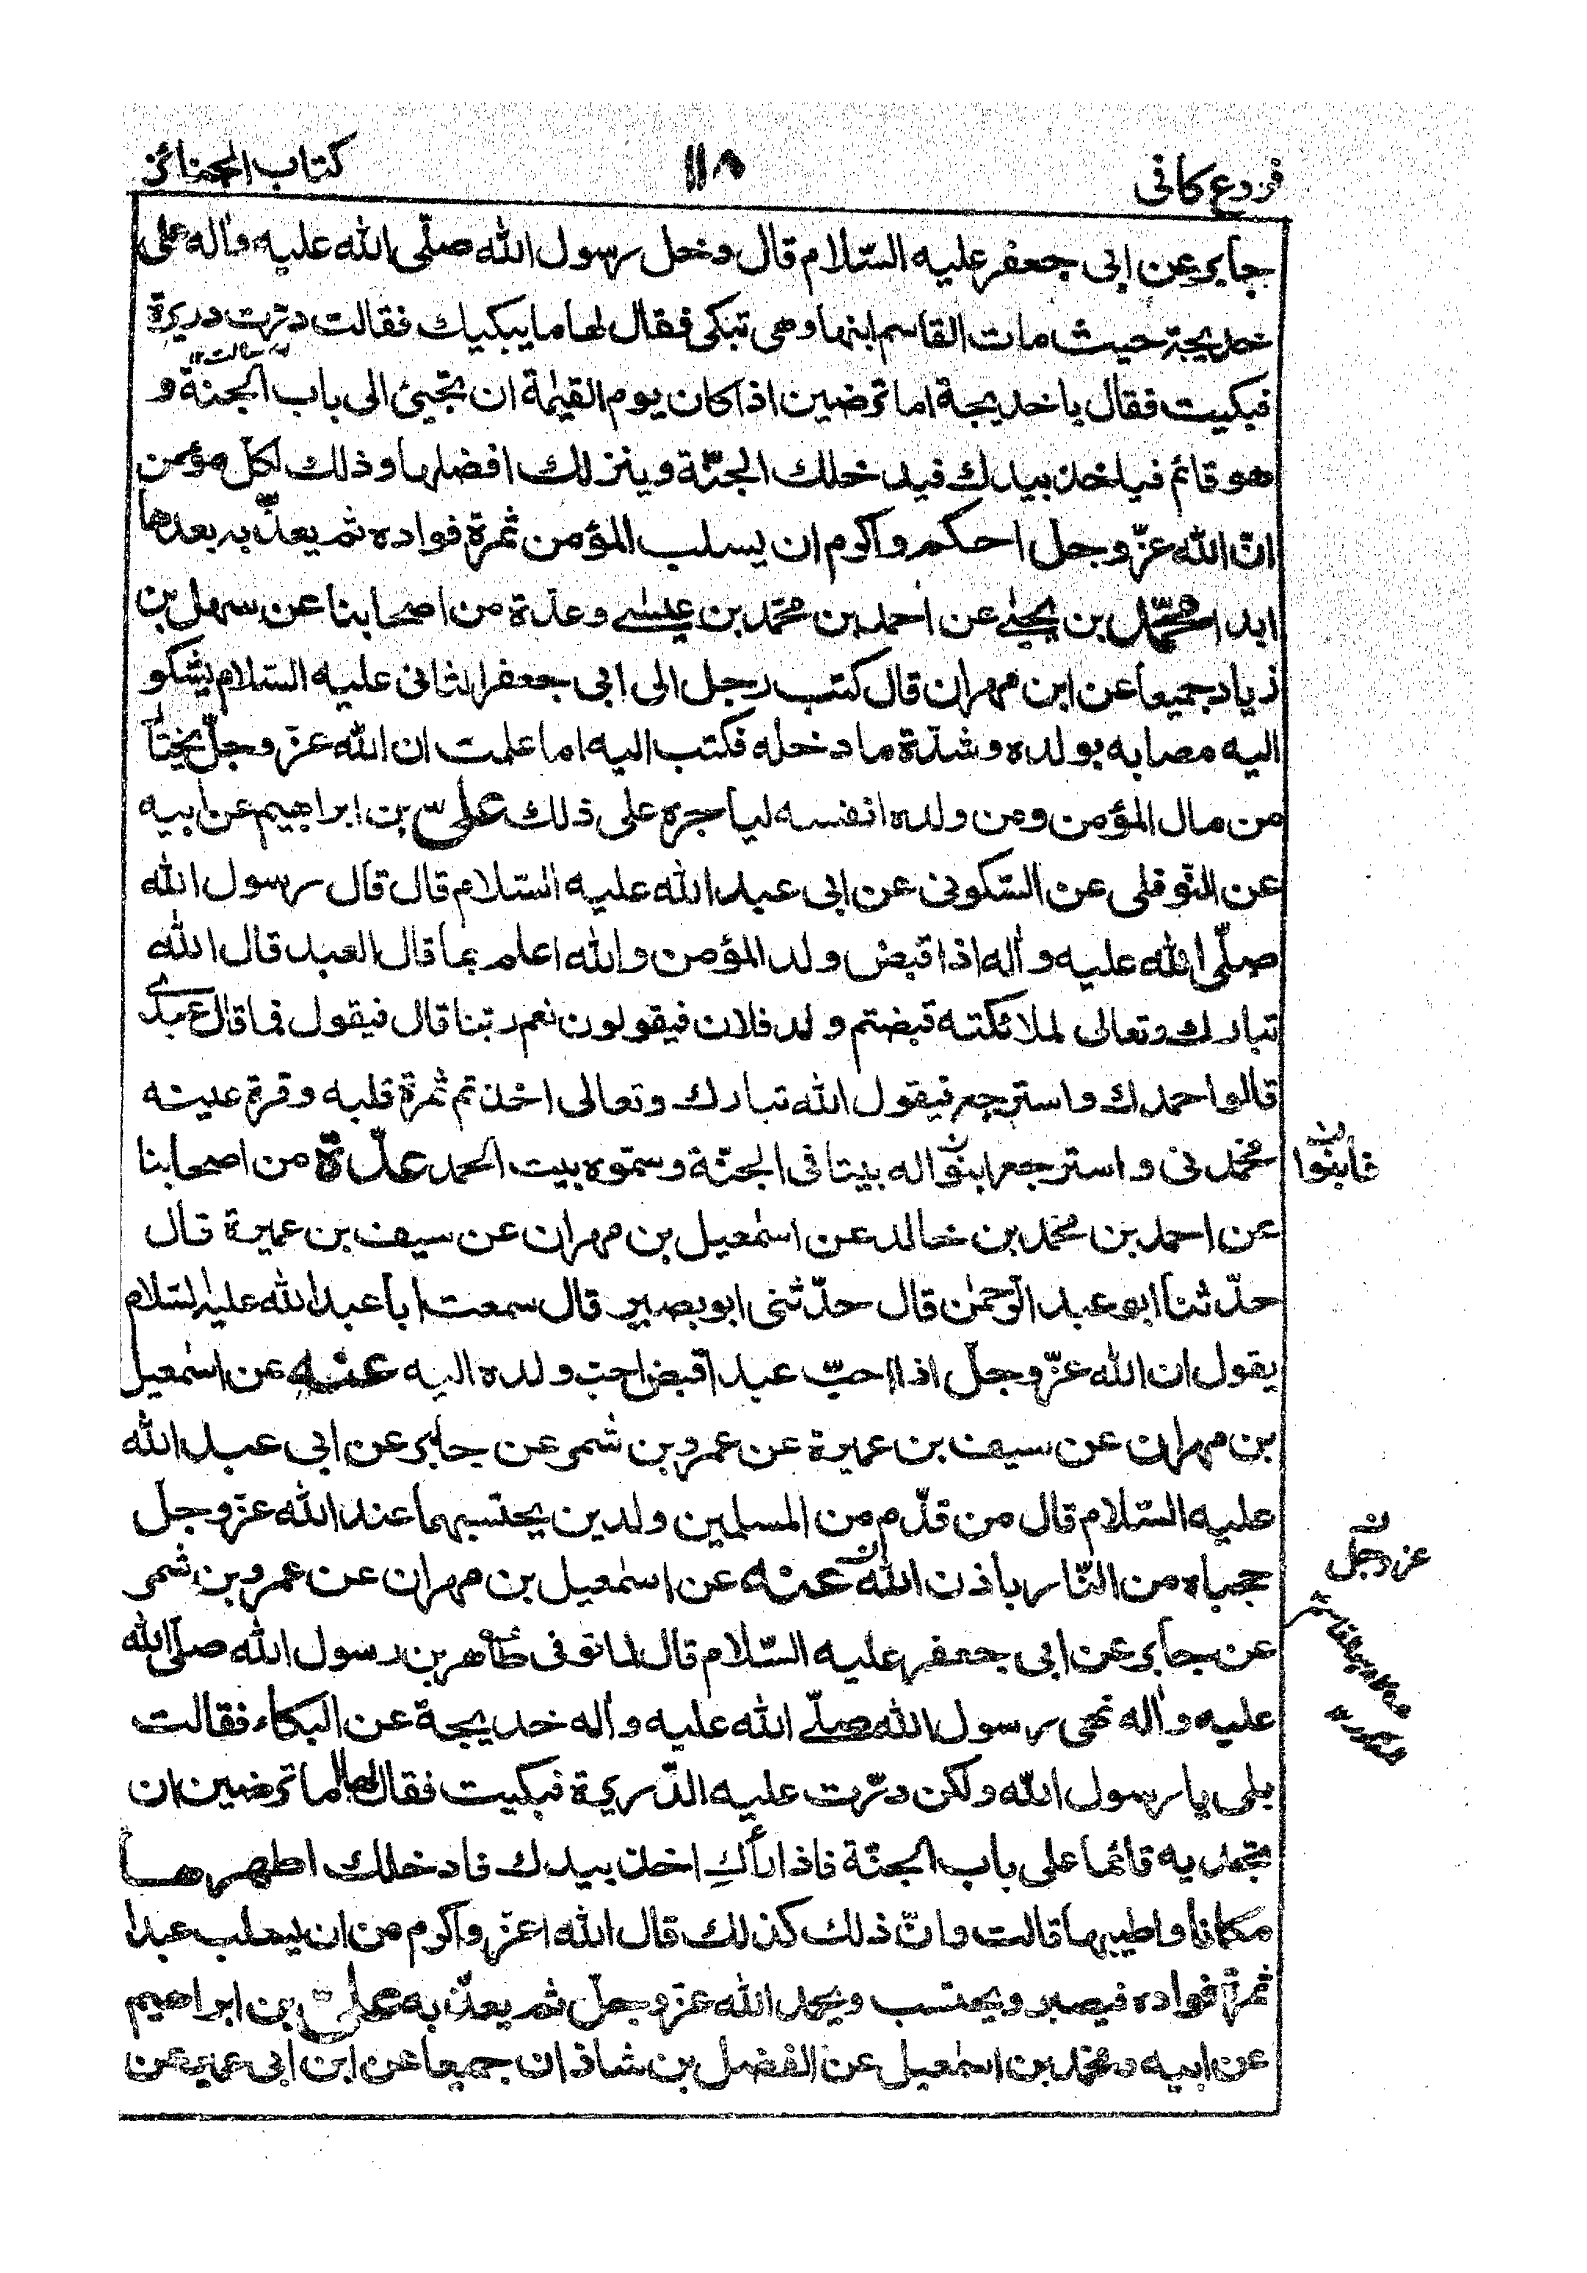 فروع كافى
١١٨
كتاب الجنائز
جابر عن ابى جعفر عليه السّلام قال دخل رسول الله صلّى الله عليه وآله على
خديجة حيث مات القاسم ابنها وهى تبكى فقال لها ما يبكيك فقالت درّت دريرة
فبكيت فقال يا خديجة اما ترضين اذا كان يوم القيٰمة ان تجيئ الى باب الجنة و
هو قائم فياخذ بيدك فيدخلك الجنّة وينزلك افضلها وذلك لكلّ مؤمن
انّ الله عزّ وجل احكم واكرم ان يسلب المؤمن ثمرة فواده ثم يعذّبه بعدها
ابدا محمّد بن يحيٰى عن احمد بن محمّد بن عيسٰى وعدّة من اصحابنا عن سهل بن
زياد جميعا عن ابن مهران قال كتب رجل الى ابى جعفر الثانى عليه السّلام يشكو
اليه مصابه بولده وشدّة ما دخله فكتب اليه اما علمت ان الله عزّ وجلّ يختار
من مال المؤمن ومن ولده انفسه لياجره على ذلك علىّ بن ابراهيم عن ابيه
عن النّوفلى عن السّكونى عن ابى عبد الله عليه السّلام قال قال رسول الله
صلّى الله عليه وآله اذا قبض ولد المؤمن والله اعلم بما قال العبد قال الله
تبارك وتعالى لملائكته قبضتم ولد فلان فيقولون نعم ربّنا قال فيقول فما قال عبدى
قالوا حمدك واسترجع فيقول الله تبارك وتعالى اخذتم ثمرة قلبه وقرة عينه
فحمدنى واسترجع ابنوا له بيتا فى الجنّة وسمّوه بيت الحمد عدّة من اصحابنا
فابنوا
عن احمد بن محمّد بن خالد عن اسمٰعيل بن مهران عن سيف بن عميرة قال
حدّثنا ابو عبد الرّحمٰن قال حدّثنى ابو بصير قال سمعت ابا عبد الله عليه السّلام
يقول ان الله عزّ وجلّ اذا احبّ عبدا قبض احبّ ولده اليه عنه عن اسمٰعيل
بن مهران عن سيف بن عميرة عن عمرو بن شمر عن جابر عن ابى عبد الله
عليه السّلام قال من قدّم من المسلمين ولدين يحتسبهما عند الله عزّ وجل
حجباه من النّار باذن الله عنه عن اسمٰعيل بن مهران عن عمرو بن شمر
عزّ وجلّ
عن جابر عن ابى جعفر عليه السّلام قال لما توفى طاهر بن رسول الله صلّى الله
عليه وآله نهى رسول الله صلّى الله عليه وآله خديجة عن البكاء فقالت
بلى يا رسول الله ولكن درّت عليه الدّريرة فبكيت فقال لها اما ترضين ان
تجديه قائما على باب الجنّة فاذا رآك اخذ بيدك فادخلك اطهرها
مكانا واطيبها قالت وانّ ذلك كذلك قال الله اعزّ واكرم من ان يسلب عبدا
ثمرة فواده فيصبر ويحتسب ويحمد الله عزّ وجلّ ثم يعذّبه علىّ بن ابراهيم
عن ابيه ومحمّد بن اسمٰعيل عن الفضل بن شاذان جميعا عن ابن ابى عمير عن